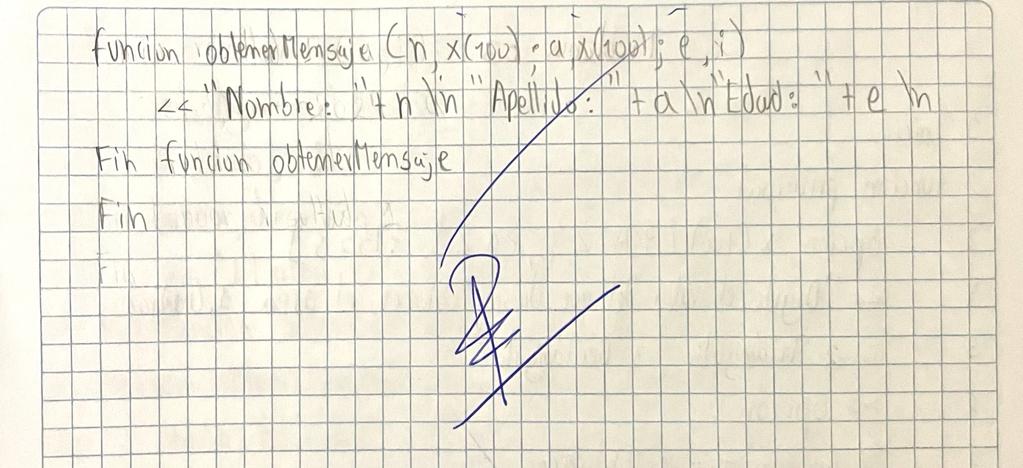 funcion obtenerMensaje (n, x(100); a, x(100); e, i)
<< "Nombre: "+ n \n "Apellido: " + a \n "Edad: " + e \n
Fin funcion obtenerMensaje
Fin
Fin